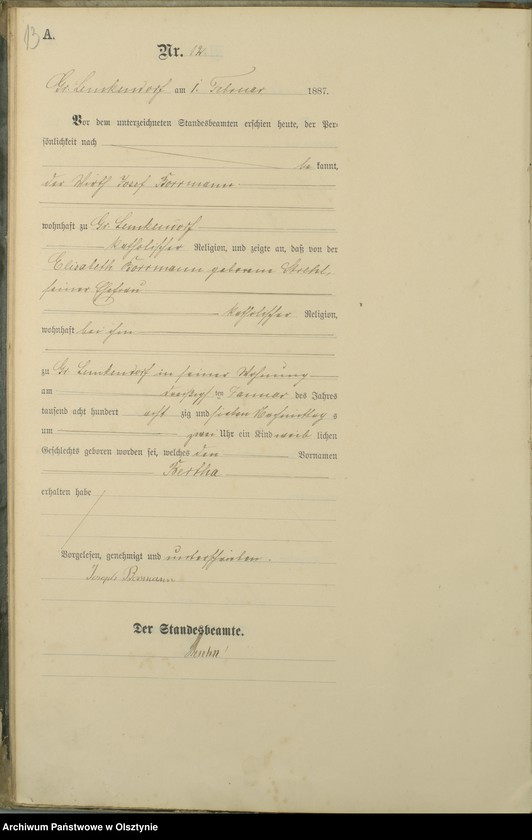 13 A.
Nr. 12.
Gr. Lemkendorf am 1. Februar 1887.
Vor dem unterzeichneten Standesbeamten erschien heute, der Per-
sönlichkeit nach
be kannt,
der Wirth Josef Borrmann
wohnhaft zu Gr. Lemkendorf
katholischer Religion, und zeigte an, daß von der
Elisabeth Borrmann geborene
seiner Ehefrau
katholischer Religion,
wohnhaft bei ihm
zu Gr. Lemkendorf in seiner Wohnung
am dreißigsten Januar des Jahres
tausend acht hundert acht zig und sieben Nachmittag s
um zwei Uhr ein Kind weib lichen
Geschlechts geboren worden sei, welches den Vornamen
Bertha
erhalten habe
Vorgelesen, genehmigt und unterschrieben.
Joseph Borrmann
Der Standesbeamte.
Archiwum Państwowe w Olsztynie